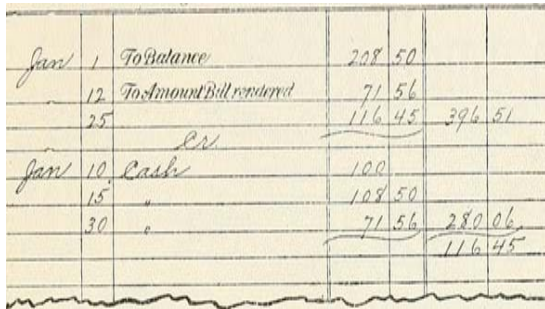 Jan 1 To Balance 208 50
12 To Amount Bill rendered 71 56
25 116 45 396 51
Cr
Jan 10 Cash 100
15 " 108 50
30 " 71 56 280 06
116 45